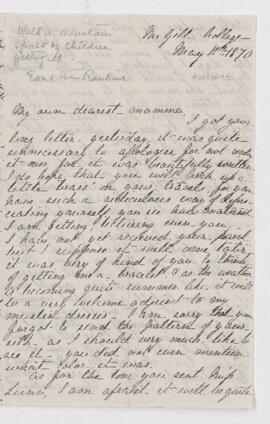 Walk on mountain
spoilt by children
getting ill.
McGill College
May 11th 1870
My own dearest mamma
I got your
long letter yesterday, it was quite
unnecessary to apologise for not
it over for it was beautifully written
I do hope that you will pick up a
little brass in your travels for you
have such a ridiculous way of depre-
ciating yourself you see how material
I am getting lecturing even you.
I have not yet received your parcel
but I suppose it will come later
it was very kind of you to think
of getting me a bracelet & as the weather
is becoming quite summer like it will
be a very welcome adjunct to my
muslin dresses. I am sorry that you
forgot to send the pattern of your
silk as I should very much like to
see it you did not even mention
what color it was.
As for the one you sent Miss
Lunn, I am afraid it will be quite